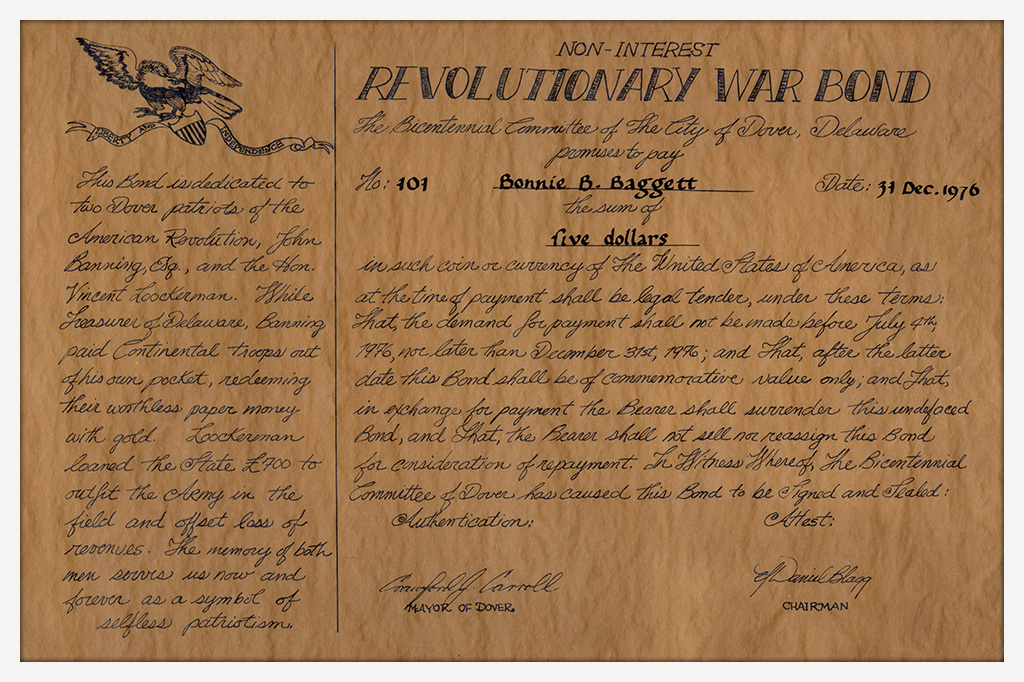 LIBERTY AND INDEPENDENCE
This Bond is dedicated to
two Dover patriots of the
American Revolution, John
Banning, Esq., and the Hon.
Vincent Loockerman. While
Treasurer of Delaware, Banning
paid Continental troops out
of his own pocket, redeeming
their worthless paper money
with gold. Loockerman
loaned the State £700 to
outfit the Army in the
field and offset loss of
revenues. The memory of both
men serves us now and
forever as a symbol of
selfless patriotism.
NON-INTEREST
REVOLUTIONARY WAR BOND
The Bicentennial Committee of The City of Dover, Delaware
promises to pay
No: 101 Bonnie B. Baggett Date: 31 Dec. 1976
the sum of
five dollars
in such coin or currency of The United States of America, as
at the time of payment shall be legal tender, under these terms:
That, the demand for payment shall not be made before July 4th,
1976, nor later than December 31st, 1976; and That, after the latter
date this Bond shall be of commemorative value only; and That,
in exchange for payment the Bearer shall surrender this undefaced
Bond, and That, the Bearer shall not sell nor reassign this Bond
for consideration of repayment. In Witness Whereof, The Bicentennial
Committee of Dover has caused this Bond to be Signed and Sealed:
Authentication: Attest:
Crawford J Carroll Daniel Blagg
MAYOR OF DOVER. CHAIRMAN